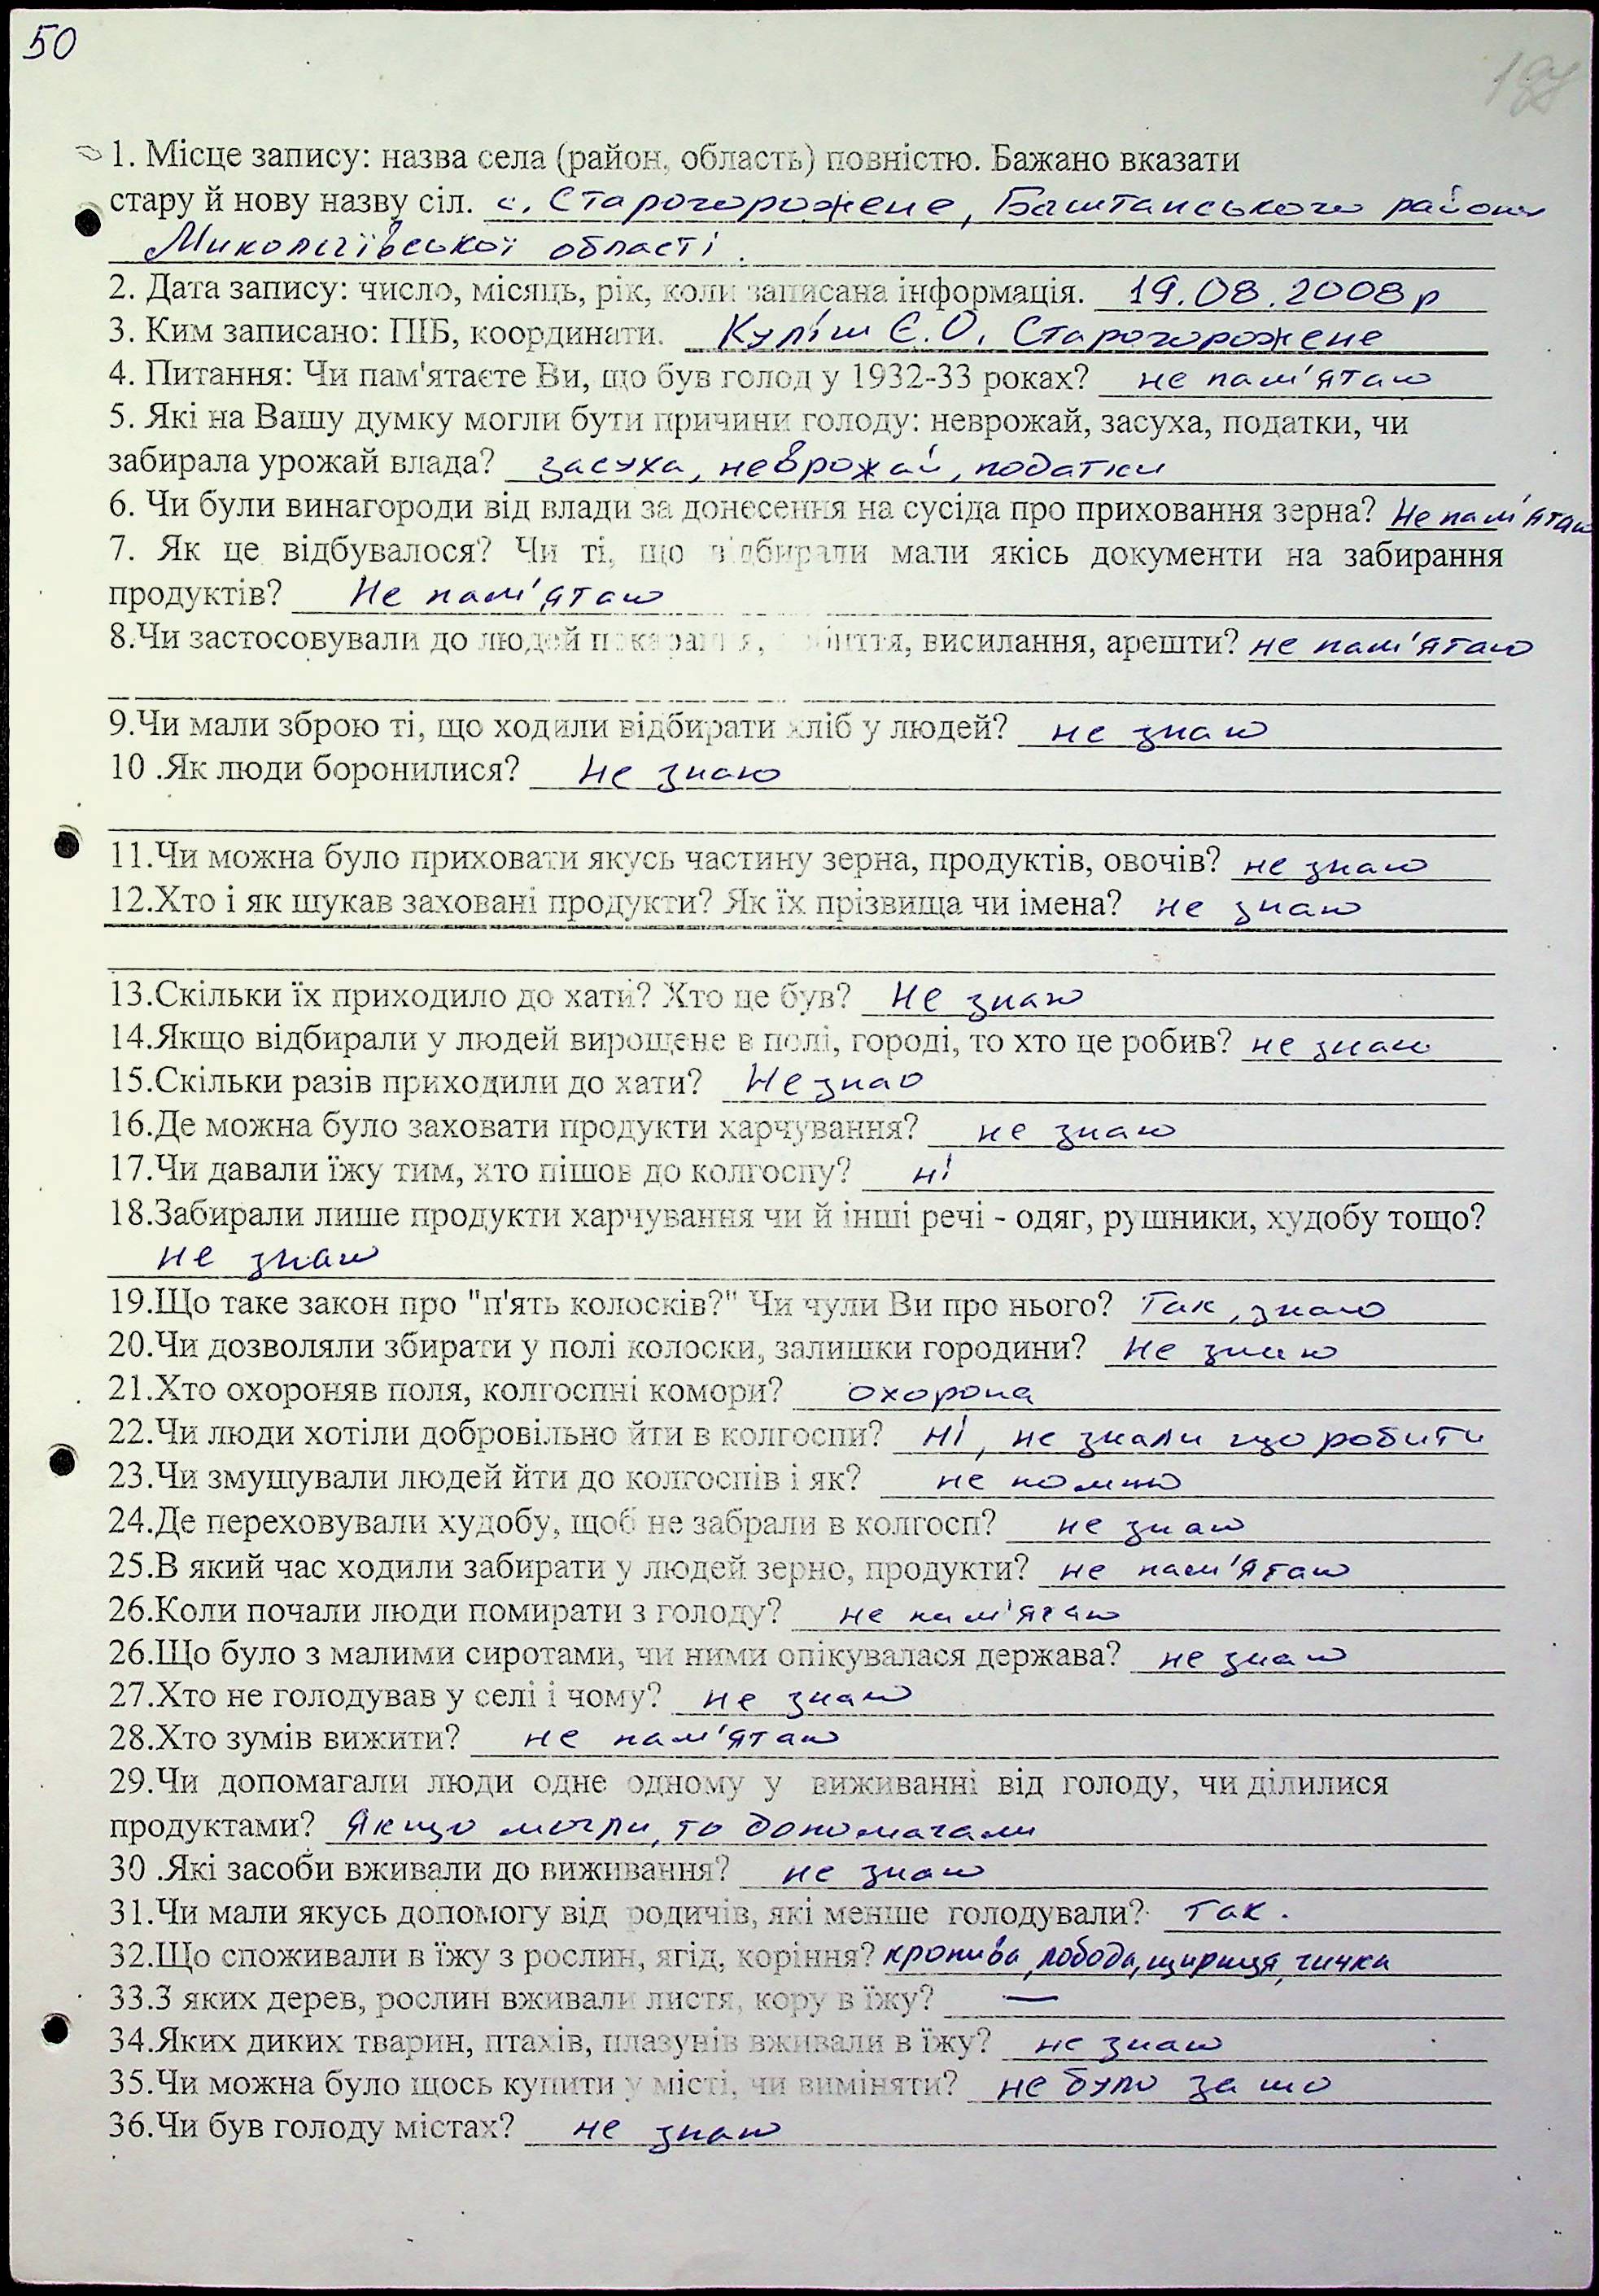 50
197
1. Місце запису: назва села (район, область) повністю. Бажано вказати
стару й нову назву сіл. с. Старогорожене, Баштанського району
Миколаївської області.
2. Дата запису: число, місяць, рік, коли записана інформація. 19.08.2008р
3. Ким записано: ПІБ, координати. Куліш Є.О. Старогорожене
4. Питання: Чи пам'ятаєте Ви, що був голод у 1932-33 роках? не пам'ятаю
5. Які на Вашу думку могли бути причини голоду: неврожай, засуха, податки, чи
забирала урожай влада? засуха, неврожай, податки
6. Чи були винагороди від влади за донесення на сусіда про приховання зерна? Не пам'ятаю
7. Як це відбувалося? Чи ті, що відбирали мали якісь документи на забирання
продуктів? Не пам'ятаю
8.Чи застосовували до людей покарання, биття, висилання, арешти? не пам'ятаю
9.Чи мали зброю ті, що ходили відбирати хліб у людей? не знаю
10 .Як люди боронилися? Не знаю
11.Чи можна було приховати якусь частину зерна, продуктів, овочів? не знаю
12.Хто і як шукав заховані продукти? Як їх прізвища чи імена? не знаю
13.Скільки їх приходило до хати? Хто це був? Не знаю
14.Якщо відбирали у людей вирощене в полі, городі, то хто це робив? не знаю
15.Скільки разів приходили до хати? Не знаю
16.Де можна було заховати продукти харчування? не знаю
17.Чи давали їжу тим, хто пішов до колгоспу? ні
18.Забирали лише продукти харчування чи й інші речі - одяг, рушники, худобу тощо?
не знаю
19.Що таке закон про "п'ять колосків?" Чи чули Ви про нього? Так, знаю
20.Чи дозволяли збирати у полі колоски, залишки городини? Не знаю
21.Хто охороняв поля, колгоспні комори? охорона
22.Чи люди хотіли добровільно йти в колгоспи? Ні, не знали що робити
23.Чи змушували людей йти до колгоспів і як? не помню
24.Де переховували худобу, щоб не забрали в колгосп? не знаю
25.В який час ходили забирати у людей зерно, продукти? не пам'ятаю
26.Коли почали люди помирати з голоду? не пам'ятаю
26.Що було з малими сиротами, чи ними опікувалася держава? не знаю
27.Хто не голодував у селі і чому? не знаю
28.Хто зумів вижити? не пам'ятаю
29.Чи допомагали люди одне одному у виживанні від голоду, чи ділилися
продуктами? Якщо могли, то допомагали
30 .Які засоби вживали до виживання? не знаю
31.Чи мали якусь допомогу від родичів, які менше голодували? Так.
32.Що споживали в їжу з рослин, ягід, коріння? кропива, лобода, щириця, чички
33.З яких дерев, рослин вживали листя, кору в їжу? —
34.Яких диких тварин, птахів, плазунів вживали в їжу? не знаю
35.Чи можна було щось купити у місті, чи виміняти? не було за що
36.Чи був голоду містах? не знаю